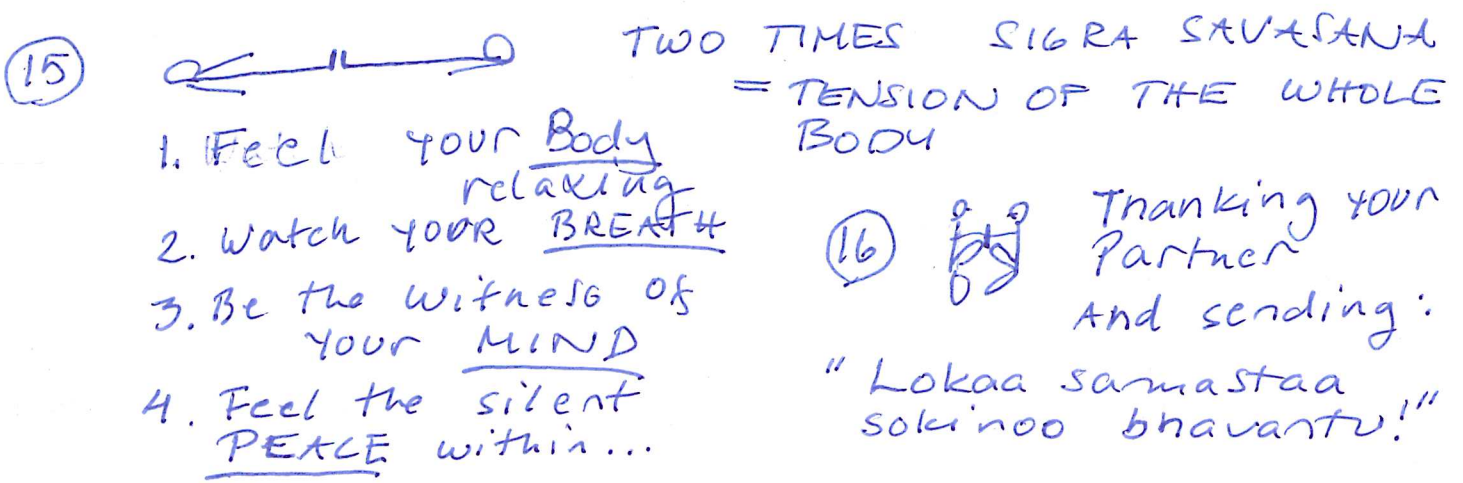 15
TWO TIMES SIGRA SAVASANA
= TENSION OF THE WHOLE
BODY
1. Feel your Body
relaxing
2. Watch YOUR BREATH
3. Be the witness of
your MIND
4. Feel the silent
PEACE within...
16
Thanking your
Partner
And sending:
"Lokaa samastaa
sokinoo bhavantu!"